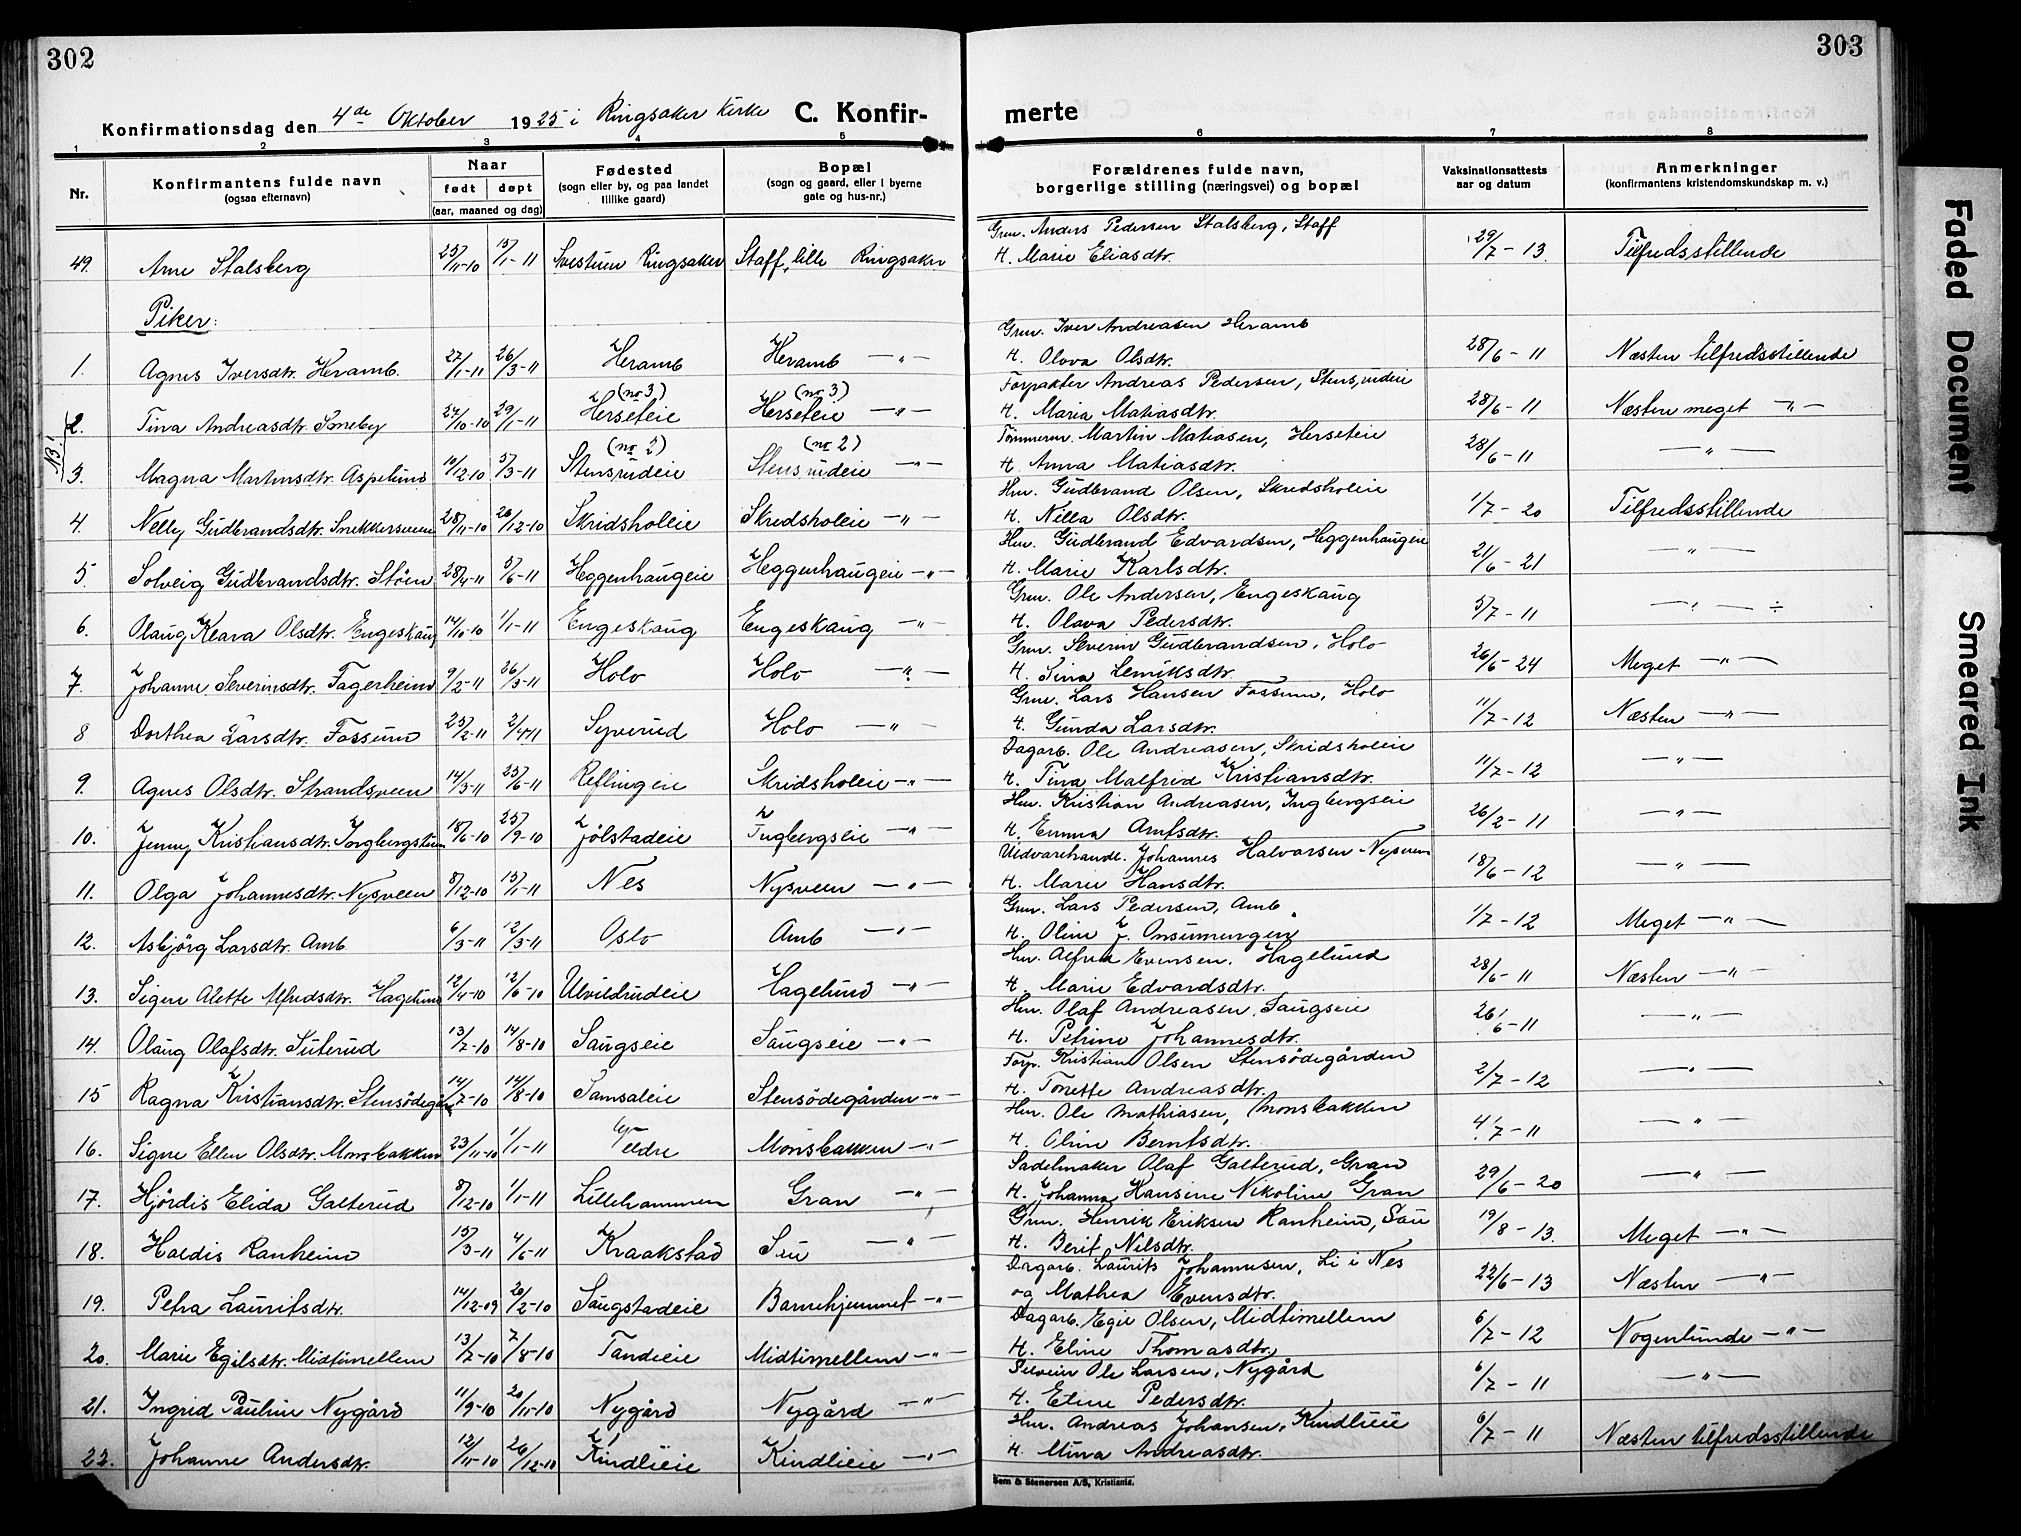 302
303
Konfirmationsdag den 4de Oktober 1925 i Ringsaker Kirke C. Konfir- merte
1 2 3 4 5 6 7 8
Nr. Konfirmantens fulde navn (ogsaa efternavn) Naar født døpt (aar, maaned og dag) Fødested (sogn eller by, og paa landet tillike gaard) Bopæl (sogn og gaard, eller i byerne gate og hus-nr.) Forældrenes fulde navn, borgerlige stilling (næringsvei) og bopæl Vaksinationsattests aar og datum Anmerkninger (konfirmantens kristendomskundskap m. v.)
Grm. Anders Pedersen Stalsberg, Staff
49. Arne Stalsberg 25/11-10 15/1-11 Ringsaker Staff, lille Ringsaker H. Marie Eliasdtr. 29/7-13 Tilfredsstillende
Piker:
Grm. Iver Andreasen Heramb
1. Agnes Iversdtr. Heramb. 27/1-11 26/3-11 Heramb Heramb —"— H. Olava Olsdtr. 28/6-11 Næsten tilfredsstillende
(no 3) (no 3) Forpakter Andreas Pedersen, Stensrudeie
NB! 2. Tina Andreasdtr. Smeby 24/10-10 29/1-11 Herseteie Herseteie —"— H. Maria Matiasdtr. 28/6-11 Næsten meget —"—
(no 2) (no 2) Tømmerm. Martin Matiasen, Herseteie
3. Magna Martinsdtr. Aspelund 10/12-10 5/3-11 Stensrudeie Stensrudeie —"— H. Anna Matiasdtr. 28/6-11 —"—
Hm. Gudbrand Olsen, Skredsholeie
4. Nelly Gudbrandsdtr. Snekkersveen 28/11-10 26/12-10 Skridsholeie Skredsholeie —"— H. Nilla Olsdtr. 1/7-20 Tilfredsstillende
Hm. Gudbrand Edvardsen, Heggenhaugeie
5. Solveig Gudbrandsdtr. Støen 28/4-11 5/6-11 Heggenhaugeie Heggenhaugeie —"— H. Marie Karlsdtr. 21/6-21 —"—
Grm. Ole Andersen, Engeskaug
6. Olaug Klara Olsdtr. Engeskaug 14/10-10 1/1-11 Engeskaug Engeskaug —"— H. Olava Pedersdtr. 5/7-11 —"— ÷
Grm. Severin Gudbrandsen, Holo
7. Johanne Severinsdtr. Fagerheim 9/2-11 26/3-11 Holo Holo —"— H. Tina Lemiksdtr. 26/6-24 Meget —"—
Grm. Lars Hansen Fossum, Holo
8 Dorthea Larsdtr. Fossum 23/2-11 2/4-11 Syverud Holo —"— H. Gunda Larsdtr. 11/7-12 Næsten —"—
Dagarb. Ole Andreasen, Skridsholeie
9. Agnes Olsdtr. Strandsveen 14/3-11 25/6-11 Reflingeie Skridsholeie —"— H. Tina Malfred Kristiansdtr. 11/7-12 —"—
Hm. Kristian Andreasen, Ingbergseie
10. Jenny Kristiansdtr. Ingbergstuen 18/6-10 25/9-10 Jølstadeie Ingbergseie —"— H. Emma Arntsdtr. 26/2-11 —"—
Uldvarehandl. Johannes Halvorsen Nysveen
11. Olga Johannesdtr. Nysveen 8/12-10 15/1-11 Nes Nysveen —"— H. Marie Hansdtr. 18/6-12 —"—
Grm. Lars Pedersen, Amb
12. Asbjörg Larsdtr. Amb 6/3-11 12/3-11 Oslo Amb —"— H. Oline J. Onsumengen 1/7-12 Meget —"—
Hm. Alfred Evensen, Hagelund
13. Signe Alette Alfredsdtr. Hagelund 12/4-10 12/6-10 Ulvildrudeie Hagelund —"— H. Marie Edvardsdtr. 28/6-11 Næsten —"—
Hm. Olaf Andreasen, Saugseie
14. Olaug Olafsdtr. Suterud 13/7-10 14/8-10 Saugseie Saugseie —"— H. Petrine Johannesdtr. 26/6-11 —"—
Forp. Kristian Olsen Stensödegården
15 Ragna Kristiansdtr. Stensödegård 14/7-10 14/8-10 Samsaleie Stensödegården —"— H. Torette Andreasdtr. 2/7-12 —"—
Hm. Ole Mathiasen, Monsbakken
16. Signe Ellen Olsdtr. Monsbakken 23/11-10 1/1-11 Veldre Monsbakken —"— H. Oline Berntsdtr. 4/7-11 —"—
Sadelmaker Olaf Galterud, Gran
17. Hjördis Elida Galterud 8/12-10 1/1-11 Lillehammer Gran —"— H. Johanna Hansine Nikoline Gran 29/6-20 —"—
Grm. Henrik Eriksen Ranheim, Sau
18. Haldis Ranheim 15/3-11 4/6-11 Kraakstad —"— H. Berit Nilsdtr. 19/8-13. Meget —"—
Dagarb. Laurits Johannesen, Li i Nes
19. Petra Lauritsdtr. 14/12-09 20/2-10 Saugstadeie Barnehjemmet —"— og Mathea Evensdtr. 22/6-13 Næsten —"—
Dagarb. Egil Olsen, Midtimellem
20. Marie Egilsdtr. Midtimellem 13/7-10 7/8-10 Tandeie Midtimellem —"— H. Eline Thomasdtr. 6/7-12 Nogenlunde —"—
Ole Larsen, Nygård
21. Ingrid Pauline Nygård 11/9-10 20/11-10 Nygård Nygård —"— H. Eline Pedersdtr. 6/7-11 —"—
Hm. Andreas Johansen, Kindlieie
22. Johanne Andersdtr. 12/11-10 26/12-10 Kindlieie Kindlieie —"— H. Mina Andreasdtr. 6/7-11 Næsten tilfredsstillende
Sem & Stenersen A/S, Kristiania.
Faded Document
Smeared Ink